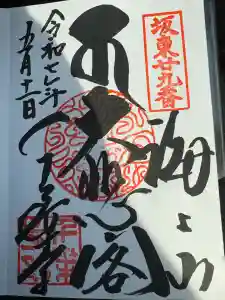 坂東廿九番
海上山
大悲閣
令和七年
五月十一日
千葉寺